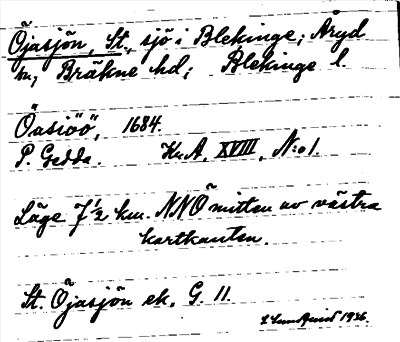 Öjasjön, St., sjö i Blekinge; Åryd
sn, Bräkne hd; Blekinge l.
Öasiöö, 1684.
P. Gedda. Kr.A. XVIII, N:o 1.
Läge 7 1/2 km. NNÖ mitten av västra
kartkanten.
St. Öjasjön ek. G. 11.
1936.